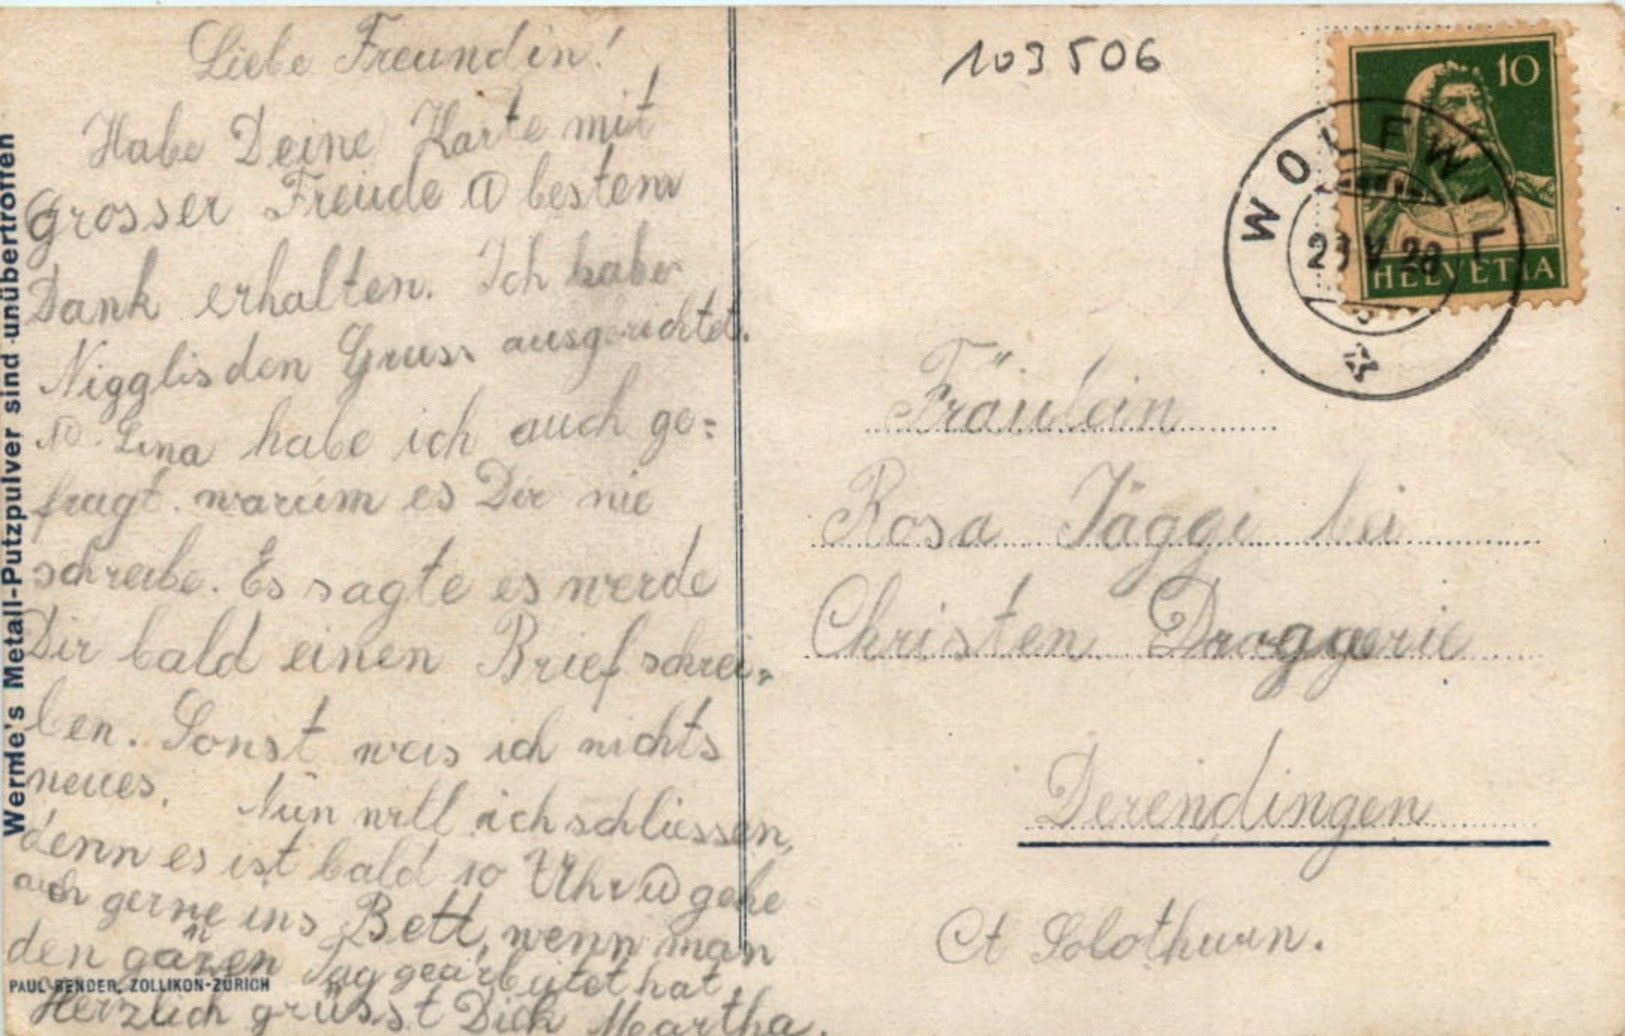 Liebe Freundin!
Habe Deine Karte mit
grosser Freude u bestem
Dank erhalten. Ich habe
Nigglis den Gruss ausgerichtet.
Lina habe ich auch ge=
fragt warum es Dir nie
schreibe. Es sagte es werde
Dir bald einen Brief schrei=
ben. Sonst was ich nichts
neues. Nun will ich schliessen,
denn es ist bald 10 Uhr u gehe
auch gerne ins Bett, wenn man
den Tag gearbeitet hat.
Herzlich grüsst Dich Martha.
Wernle's Metall-Putzpulver sind unübertroffen
PAUL BENDER, ZOLLIKON-ZÜRICH
103506
10
HELVETIA
WOLFWIL
Fräulein
Rosa Jäggi bei
Christen Droggerie
Derendingen
Ct Solothurn.